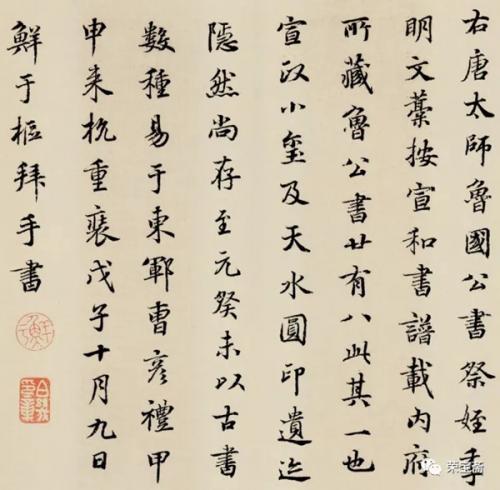 右唐太師魯國公書祭姪季
明文藁按宣和書譜載内府
所藏魯公書廿有八此其一也
宣政小璽及天水圓印遺迹
隠然尚存至元癸未以古書
數種易于東鄆曹彦禮甲
申来杭重裝戊子十月九日
鮮于樞拜手書
荣宝斋